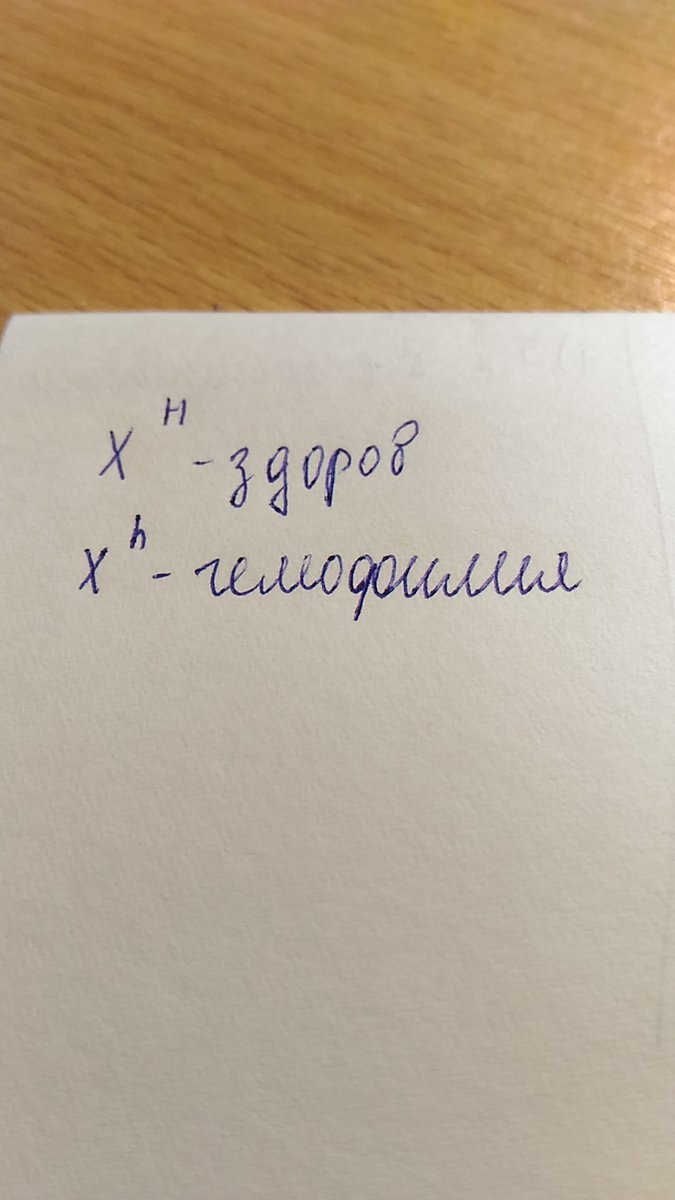 X^H - здоров
X^h - гемофилия